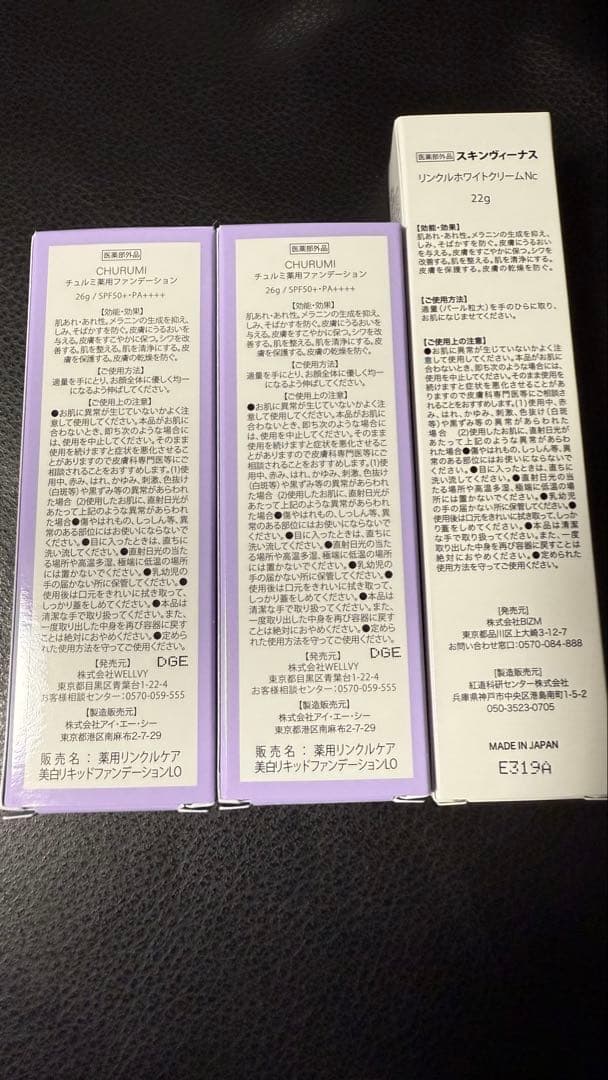 医薬部外品
CHURUMI
チュルミ薬用ファンデーション
26g / SPF50+・PA++++
【効能・効果】
肌あれ・あれ性。メラニンの生成を抑え、
しみ、そばかすを防ぐ。皮膚にうるおいを
与える。皮膚をすこやかに保つ。シワを改
善する。肌を整える。肌を清浄にする。皮
膚を保護する。皮膚の乾燥を防ぐ。
【ご使用方法】
適量を手にとり、お顔全体に優しく均一
になるよう伸ばしてください。
【ご使用上の注意】
●お肌に異常が生じていないかよく注
意して使用してください。本品がお肌に
合わないとき、即ち次のような場合に
は、使用を中止してください。そのまま
使用を続けますと症状を悪化させるこ
とがありますので皮膚科専門医等にご相
談されることをおすすめします。(1)使
用中、赤み、はれ、かゆみ、刺激、色抜け
(白斑等)や黒ずみ等の異常があらわれ
た場合 (2)使用したお肌に、直射日光が
あたって上記のような異常があらわれ
た場合●傷やはれもの、しっしん等、異
常のある部位にはお使いにならないで
ください。●目に入ったときは、直ちに
洗い流してください。●直射日光の当た
る場所や高温多湿、極端に低温の場所
には置かないでください。●乳幼児の
手の届かない所に保管してください。●
使用後は口元をきれいに拭き取って、
しっかり蓋をしめてください。●本品は
清潔な手で取り扱ってください。また、
一度取り出した中身を再び容器に戻す
ことは絶対におやめください。●定めら
れた使用方法を守ってご使用ください。
DGE
【発売元】
株式会社WELLVY
東京都目黒区青葉台1-22-4
お客様相談センター:0570-059-555
【製造販売元】
株式会社アイ・エー・シー
東京都港区南麻布2-7-29
販売名:薬用リンクルケア
美白リキッドファンデーションLO
医薬部外品
CHURUMI
チュルミ薬用ファンデーション
26g / SPF50+・PA++++
【効能・効果】
肌あれ・あれ性。メラニンの生成を抑え、
しみ、そばかすを防ぐ。皮膚にうるおいを
与える。皮膚をすこやかに保つ。シワを改
善する。肌を整える。肌を清浄にする。皮
膚を保護する。皮膚の乾燥を防ぐ。
【ご使用方法】
適量を手にとり、お顔全体に優しく均一
になるよう伸ばしてください。
【ご使用上の注意】
●お肌に異常が生じていないかよく注
意して使用してください。本品がお肌に
合わないとき、即ち次のような場合に
は、使用を中止してください。そのまま使
用を続けますと症状を悪化させること
がありますので皮膚科専門医等にご相
談されることをおすすめします。(1)使
用中、赤み、はれ、かゆみ、刺激、色抜け
(白斑等)や黒ずみ等の異常があらわれ
た場合 (2)使用したお肌に、直射日光が
あたって上記のような異常があらわれ
た場合●傷やはれもの、しっしん等、異
常のある部位にはお使いにならないで
ください。●目に入ったときは、直ちに
洗い流してください。●直射日光の当た
る場所や高温多湿、極端に低温の場所
には置かないでください。●乳幼児の
手の届かない所に保管してください。●
使用後は口元をきれいに拭き取って、
しっかり蓋をしめてください。●本品は
清潔な手で取り扱ってください。また、
一度取り出した中身を再び容器に戻す
ことは絶対におやめください。●定めら
れた使用方法を守ってご使用ください。
DGE
【発売元】
株式会社WELLVY
東京都目黒区青葉台1-22-4
お客様相談センター:0570-059-555
【製造販売元】
株式会社アイ・エー・シー
東京都港区南麻布2-7-29
販売名:薬用リンクルケア
美白リキッドファンデーションLO
医薬部外品 スキンヴィーナス
リンクルホワイトクリームNc
22g
【効能・効果】
肌あれ・あれ性。メラニンの生成を抑え、
しみ、そばかすを防ぐ。皮膚にうるおい
を与える。皮膚をすこやかに保つ。シワを
改善する。肌を整える。肌を清浄にする。
皮膚を保護する。皮膚の乾燥を防ぐ。
【ご使用方法】
適量(パール粒大)を手のひらに取り、
お肌になじませてください。
【ご使用上の注意】
●お肌に異常が生じていないかよく注
意して使用してください。本品がお肌に
合わないとき、即ち次のような場合には、
使用を中止してください。そのまま使用
を続けますと症状を悪化させることがあ
りますので皮膚科専門医等にご相談さ
れることをおすすめします。(1)使用中、赤
み、はれ、かゆみ、刺激、色抜け(白斑
等)や黒ずみ等の異常があらわれた場
合 (2)使用したお肌に、直射日光が
あたって上記のような異常があらわれ
た場合●傷やはれもの、しっしん等、異
常のある部位にはお使いにならないで
ください。●目に入ったときは、直ちに
洗い流してください。●直射日光の当た
る場所や高温多湿、極端に低温の場
所には置かないでください。●乳幼児
の手の届かない所に保管してください。●
使用後は口元をきれいに拭き取って、しっか
り蓋をしめてください。●本品は清潔
な手で取り扱ってください。また、一度
取り出した中身を再び容器に戻すことは
絶対におやめください。●定められた
使用方法を守ってご使用ください。
[発売元]
株式会社BIZM
東京都品川区上大崎3-12-7
お問い合わせ窓口:0570-084-888
[製造販売元]
紅道科研センター株式会社
兵庫県神戸市中央区港島南町1-5-2
050-3523-0705
MADE IN JAPAN
E319A